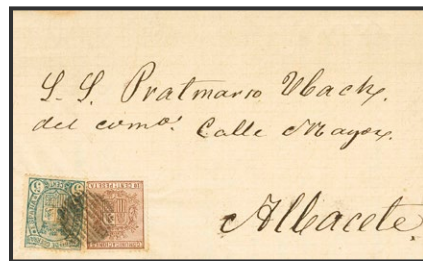 S. S. Pratmarso Ubach,
del como. Calle Mayor.
Albacete